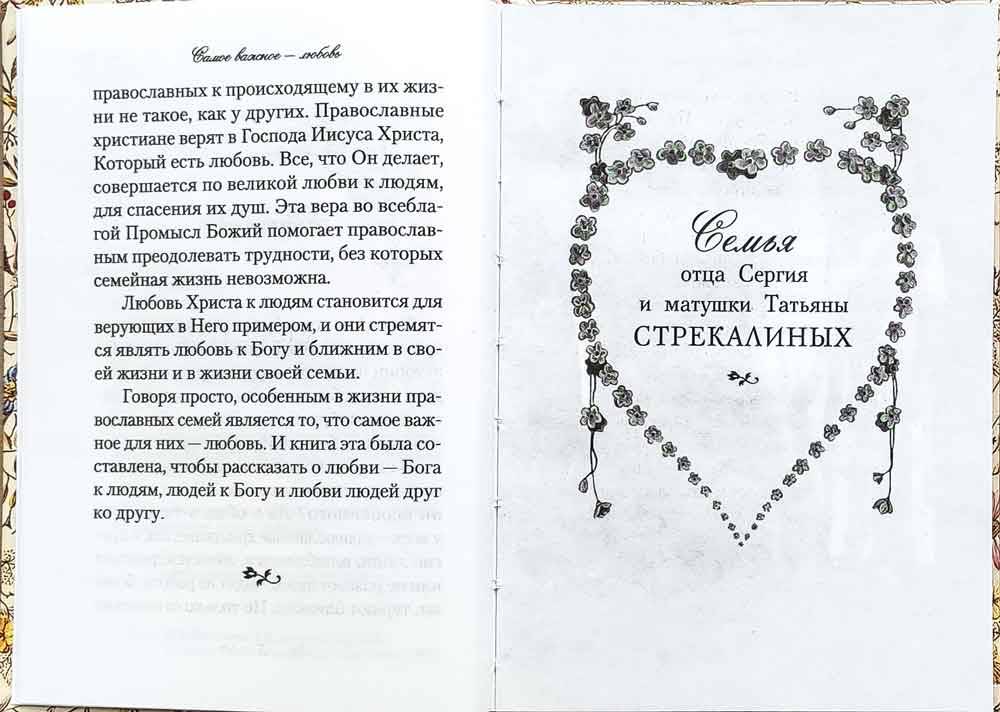 Самое важное — любовь
православных к происходящему в их жиз-
ни не такое, как у других. Православные
христиане верят в Господа Иисуса Христа,
Который есть любовь. Все, что Он делает,
совершается по великой любви к людям,
для спасения их душ. Эта вера во всебла-
гой Промысл Божий помогает православ-
ным преодолевать трудности, без которых
семейная жизнь невозможна.
Любовь Христа к людям становится для
верующих в Него примером, и они стремят-
ся являть любовь к Богу и ближним в сво-
ей жизни и в жизни своей семьи.
Говоря просто, особенным в жизни пра-
вославных семей является то, что самое важ-
ное для них — любовь. И книга эта была со-
ставлена, чтобы рассказать о любви — Бога
к людям, людей к Богу и любви людей друг
ко другу.
Семья
отца Сергия
и матушки Татьяны
СТРЕКАЛИНЫХ